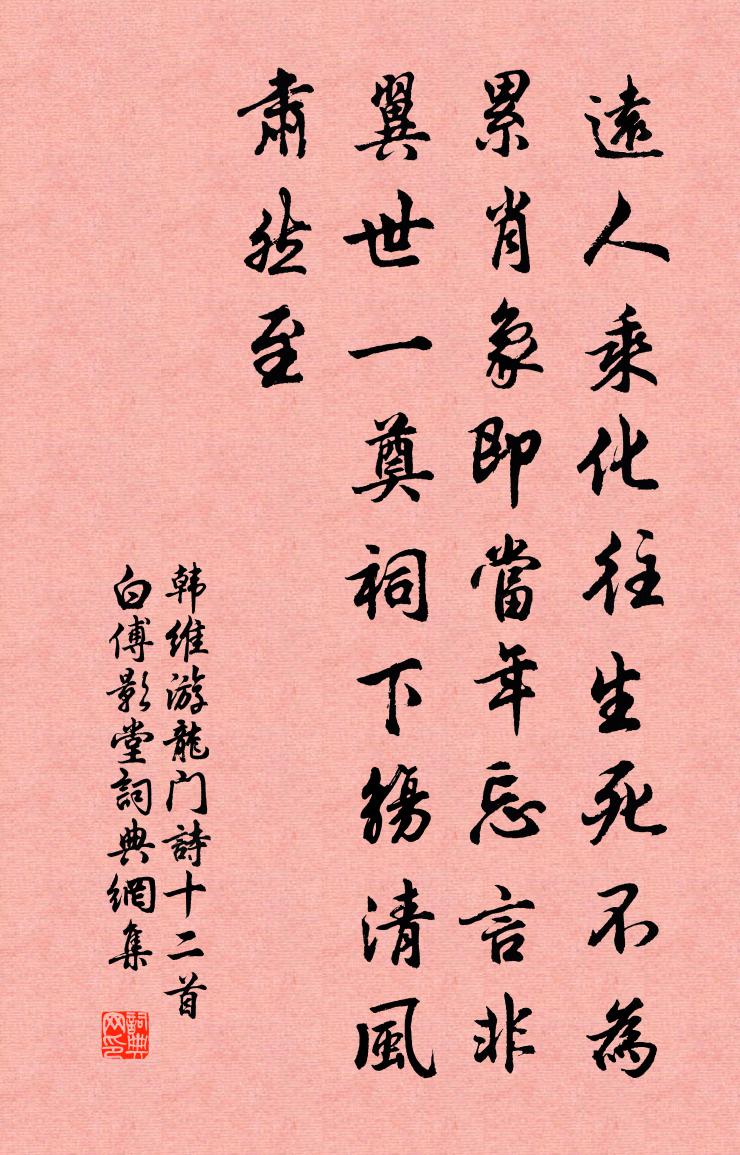 遠人乘化往生死不為
累肖象即當年忘言非
異世一奠祠下觴清風
肅然至
韩維游龍门詩十二首
白傅影堂詞典網集
詞典
网印